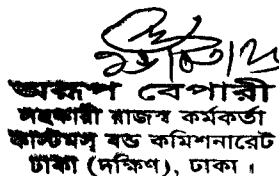 অরূপ বেপারী
সহকারী রাজস্ব কর্মকর্তা
কাস্টমস্ বন্ড কমিশনারেট
ঢাকা (দক্ষিণ), ঢাকা ।